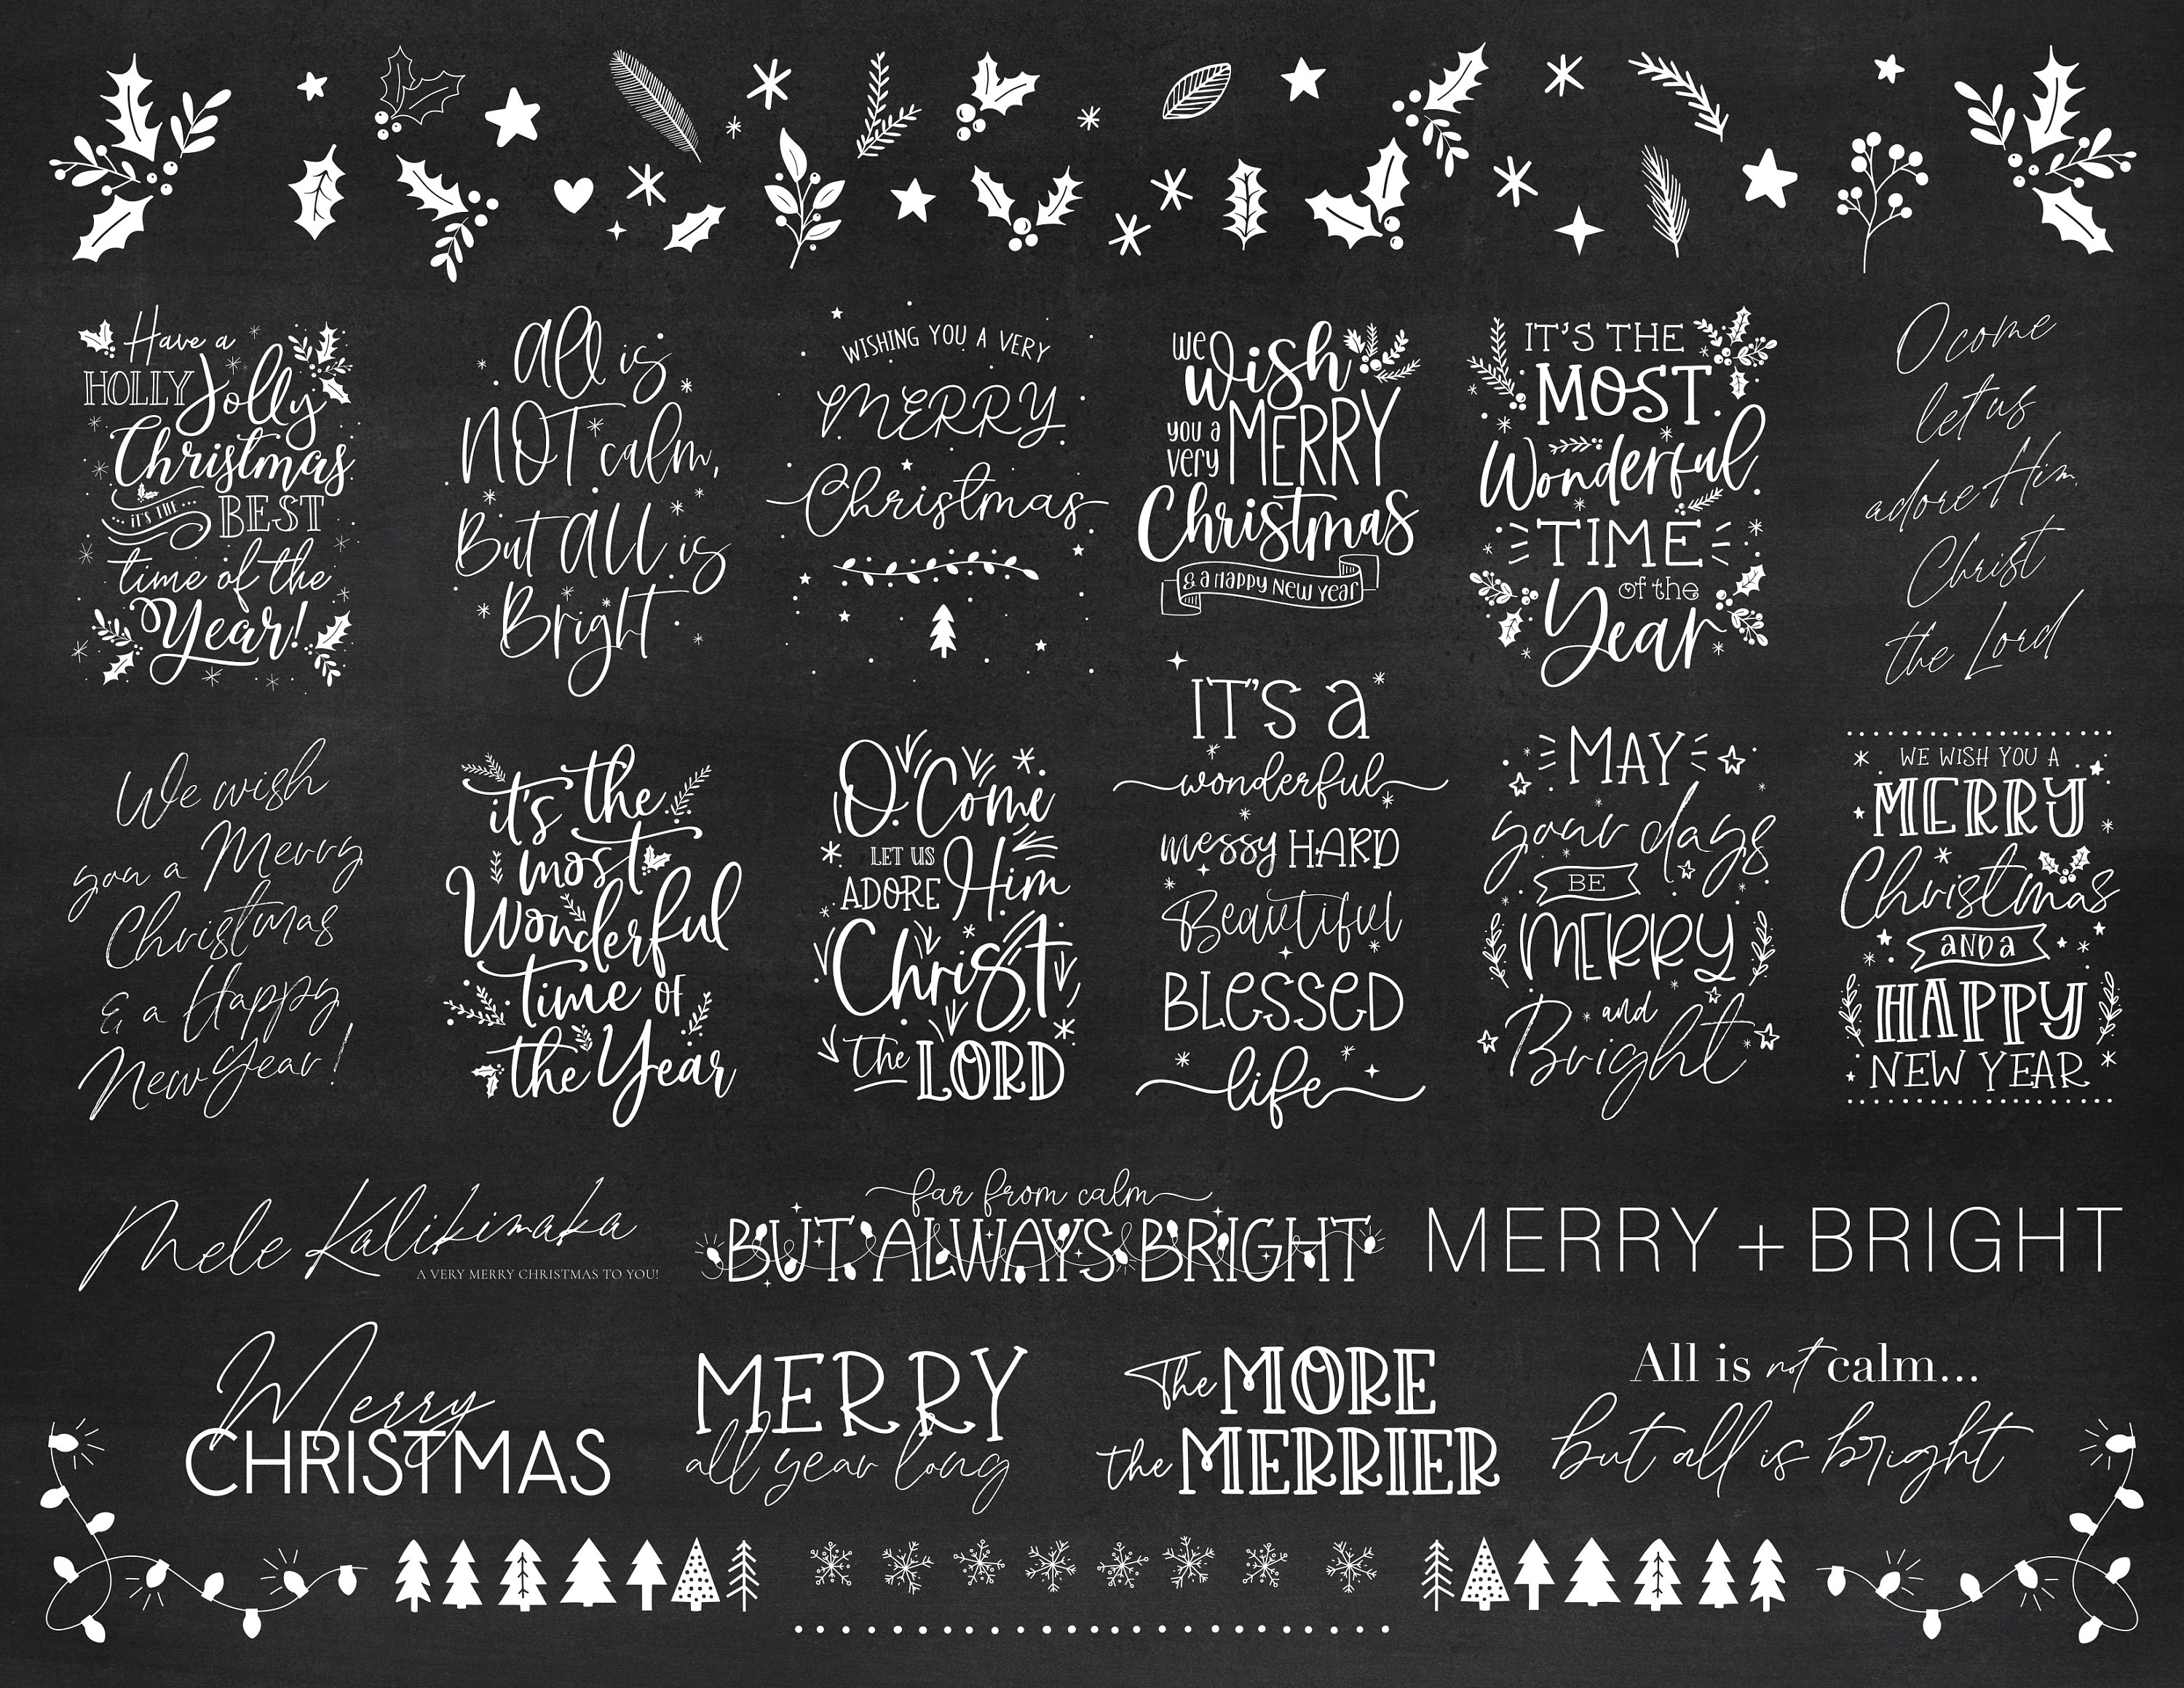 Have a
HOLLY Jolly
Christmas
IT'S THE BEST
time of the
Year!
All is
NOT calm,
But All is
Bright
WISHING YOU A VERY
MERRY
Christmas
we wish
you a very MERRY
Christmas
& a Happy New Year
IT'S THE
MOST
Wonderful
TIME
of the
Year
O come
let us
adore Him,
Christ
the Lord
We wish
you a Merry
Christmas
& a Happy
New Year!
it's the
most
Wonderful
time of
the Year
O Come
LET US
ADORE Him
Christ
the LORD
IT'S a
wonderful
messy HARD
Beautiful
BLESSED
life
MAY
your days
BE
MERRY
and
Bright
WE WISH YOU A
MERRY
Christmas
AND a
HAPPY
NEW YEAR
Mele Kalikimaka
A VERY MERRY CHRISTMAS TO YOU!
far from calm
BUT ALWAYS BRIGHT
MERRY + BRIGHT
Merry
CHRISTMAS
MERRY
all year long
The MORE
the MERRIER
All is not calm...
but all is bright